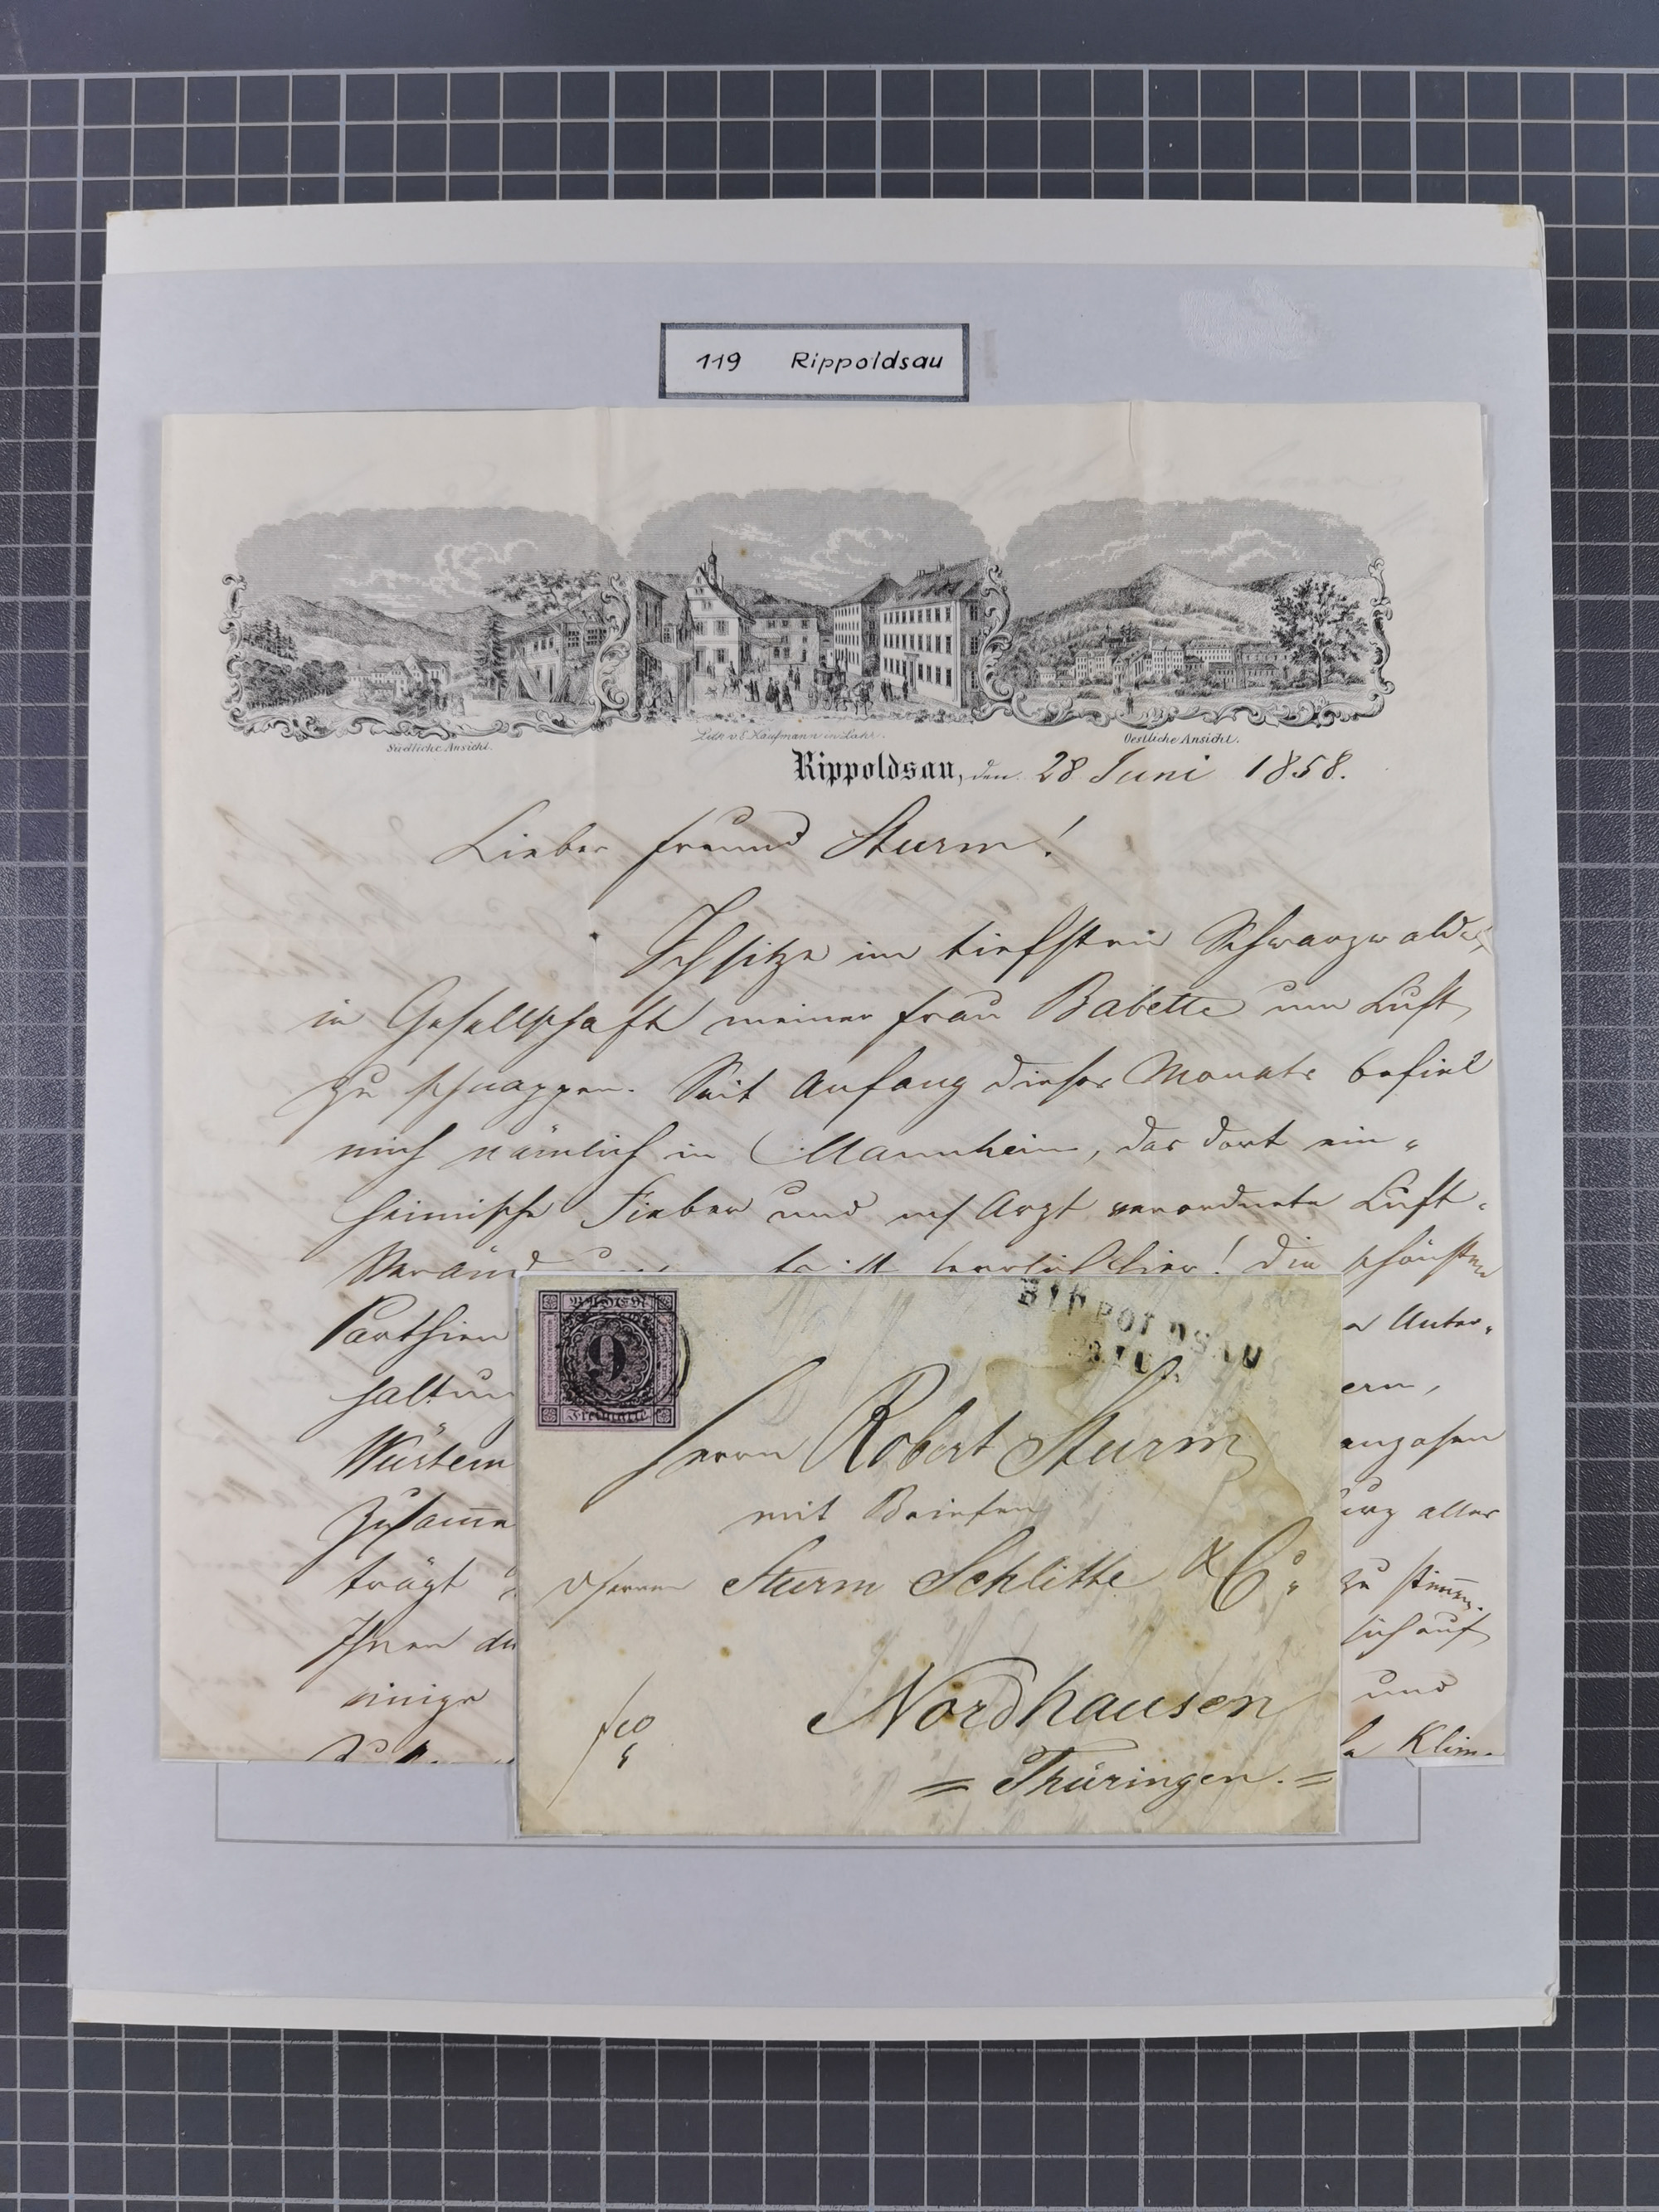 119 Rippoldsau
Südliche Ansicht.
Lith. v. E. Kaufmann in Lahr.
Oestliche Ansicht.
Rippoldsau, den 28 Juni 1858.
Lieber Freund Sturm!
Ich sitze im tiefsten Schwarzwalde,
in Gesellschaft meiner Frau Babette um Luft
zu schnappen. Seit Anfang dieses Monats befiel
mich nämlich in Mannheim, das dort ein-
heimische Fieber und Arzt verordnete Luft-
Die schönsten
Parthien
Unter-
haltun
ern,
Würtem
anzosen
Zusam̅e
aller
trägt
zu stim̅en.
Ihnen du
sich auf
einige
und
Klim-
BADEN
9
Freimarke
RIPPOLDSAU
Herrn Robert Sturm
mit Briefen
d Herren Sturm Schlitte & Co.
Nordhausen
= Thüringen. =